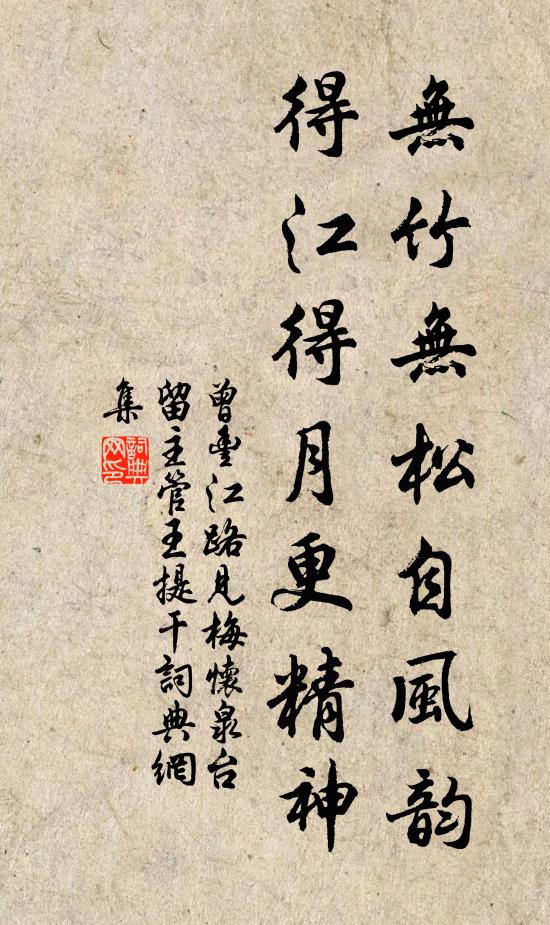 無竹無松自風韵
得江得月更精神
曾豊江路見梅懷泉台
留主管王提干詞典網
集
詞典網印